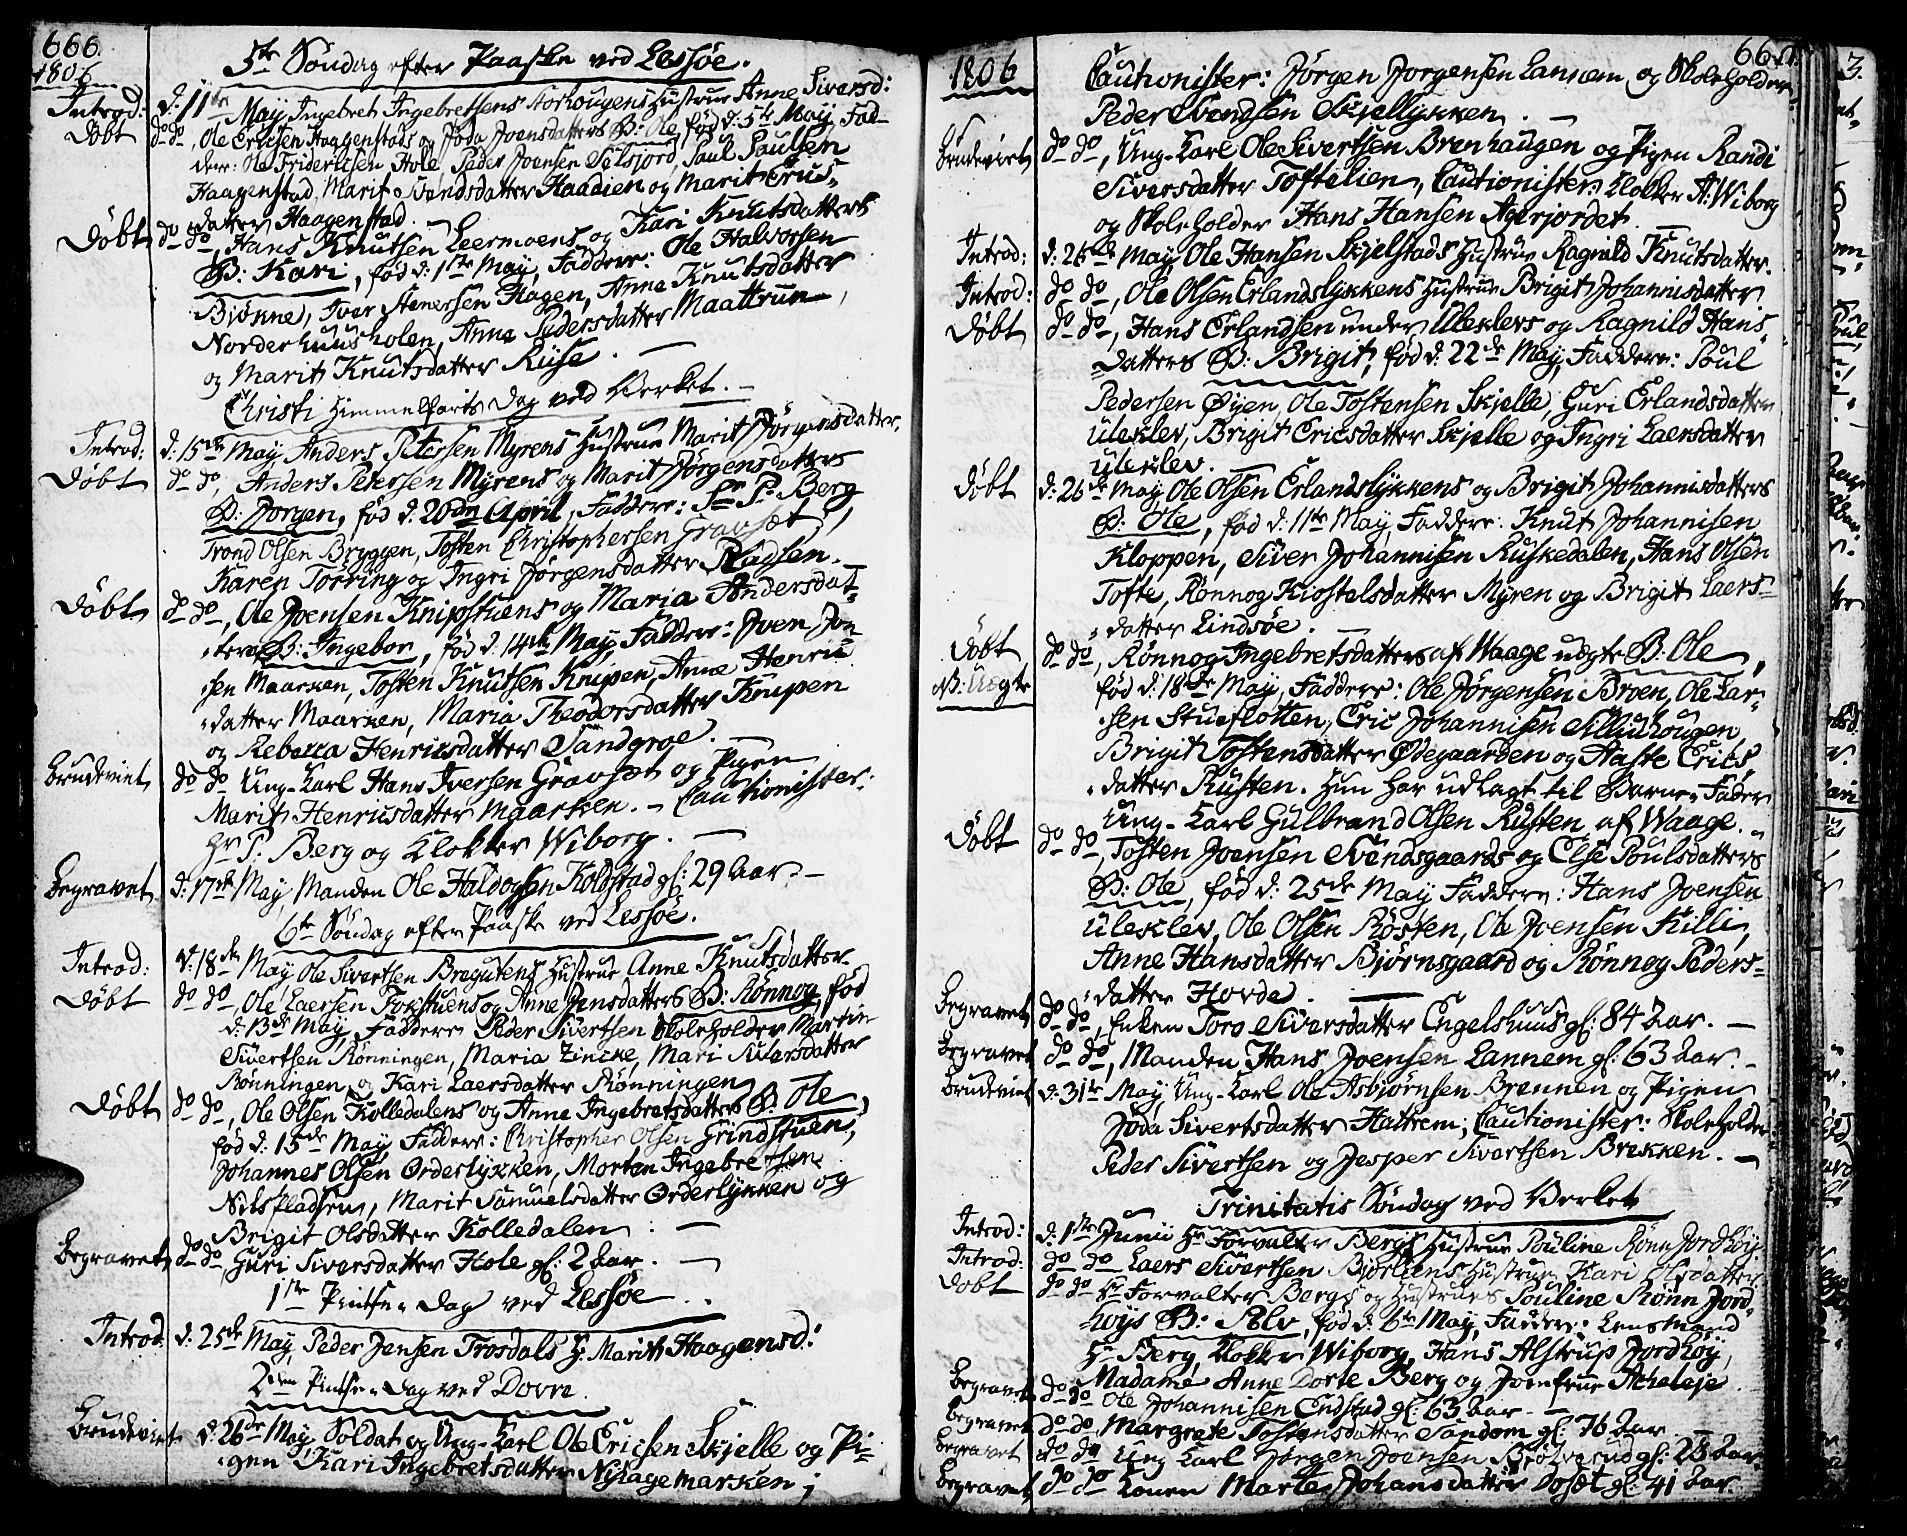 666.
1806
5te Søndag efter Paaske ved Lessøe.
Introd: d: 11te May Ingebret Ingebretsens Storhougens Hustrue Anne Siversd:
Døbt do do, Ole Ericsen Haagenstads og Jøda Joensdatters B: Ole, fød d: 5te May, Fad-
dere: Ole Friderichsen Hole, Peder Joensen Selsjord, Paul Paulsen
Haagenstad, Marit Svendsdatter Haadien og Marit Crus-
datter Haagenstad. —
Døbt do do, Hans Knutsen Leermoens og Kari Knutsdatters
B: Kari, fød d: 1ste May, Faddere: Ole Halvorsen
Biøkne, Iver Stenersen Hagen, Anne Knutsdatter
Norderhuusholen, Anne Pedersdatter Maattrue,
og Marit Knutsdatter Riise. —
Christi Himmelfarts Dag ved Verket. —
Introd: d: 15de May Anders Petersen Myrens Hustrue Marit Jørgensdatter.
Døbt do do, Anders Petersen Myrens og Marit Jørgensdatters
B: Jørgen, fød d: 20de April, Faddere: Hr P: Berg,
Trond Olsen Bryggen, Tosten Christophersen Gravsæt,
Karen Tørring og Ingri Jørgensdatter Pladsen.
Døbt do do, Ole Joensen Knipstuens og Maria Andersdat-
ters B: Ingebor, fød d: 14de May, Faddere: Joen Jon-
sen Maarken, Tosten Knutsen Knipen, Anne Henric-
datter Maarken, Maria Theodorsdatter Knipen
og Rebecca Henricsdatter Sandgroe. —
Brudeviet do do Ung-Karl Hans Iversen Gravsæt og Pigen
Marit Henricsdatter Maarken. — Cautionister:
Hr P: Berg og Klokker Wiborg. —
Begravet d: 17de May, Manden Ole Haldogsen Koldstad gl: 29 Aar. —
6te Søndag efter Paaske ved Lessøe.
Introd: d: 18de May, Ole Sivertsen Bregutens Hustrue Anne Knutsdatter.
Døbt do do, Ole Laersen Tokstuens og Anne Jensdatters B: Rønnog, fød
d: 13de May, Faddere Peder Sivertsen Skoleholder, Martin
Sivertsen Rønningen, Maria Zincke, Mari Siversdatter
Rønningen og Kari Laersdatter Rønningen.
Døbt do do, Ole Olsen Kolledalens og Anne Ingebretsdatters B: Ole,
fød d: 15de May, Faddere: Christopher Olsen Grindstuen,
Johannes Olsen Orderlykken, Morten Ingebretsen
Nilspladsen, Marit Samuelsdatter Orderlykken og
Brigit Olsdatter Kolledalen. —
Begravet do do, Guri Siversdatter Hole gl: 2 Aar. —
1ste Pintse-Dag ved Lessøe.
Introd: d: 25de May, Peder Jensen Trosdals H: Marit Haagensd:
2den Pintse-Dag ved Dovre.
Brudeviet d: 26de May Soldat og Ung-Karl Ole Ericsen Skjelle og Pi-
gen Kari Ingebretsdatter Nylagemarken;
1806
667.
Cautionister: Jørgen Jørgensen Lannem og Skoleholder
Peder Svendsen Skjellykken. —
Brudeviet do do, Ung-Karl Ole Sivertsen Brenhaugen og Pigen Randi
Siversdatter Toftelien, Cautionister: Klokker A: Wiborg
og Skoleholder Hans Hansen Agerjordet. —
Introd: d: 26de May, Ole Hansen Skjelstads Hustrue Ragnild Knutsdatter.
Introd: do do, Ole Olsen Erlandslykkens Hustrue Brigit Johannisdatter
Døbt do do, Hans Erlandsen under Uleklevs og Ragnild Hans-
datters B: Brigit, fød d: 22de May, Faddere: Poul
Pedersen Øyen, Ole Tostensen Skjelle, Guri Erlandsdatter
Uleklev, Brigit Ericsdatter Skjelle og Ingri Laersdatter
Uleklev. —
Døbt d: 26de May, Ole Olsen Erlandslykkens og Brigit Johannisdatters
B: Ole, fød d: 11te May, Faddere: Knut Johannisen
Kloppen, Siver Johannisen Ruskedalen, Hans Olsen
Tofte, Rønnog Kiostelsdatter Myren og Brigit Laers-
datter Lindsøe. —
Døbt do do, Rønnog Ingebretsdatters af Waage uægte B: Ole,
B: Uægte fød d: 18de May, Faddere: Ole Jørgensen Broen, Ole Lar-
sen Stueflotten, Eric Johannisen Silliuhougen,
Brigit Tostensdatter Ødegaarden og Aaste Erics-
datter Rusten. Hun har udlagt til Barne-Fader
Ung-Karl Gulbrand Olsen Rusten af Waage. —
Døbt do do, Tosten Joensen Svendsgaards og Else Poulsdatters
B: Ole, fød d: 25de May, Faddere: Hans Joensen
Uleklev, Ole Olsen Røsten, Ole Joensen Killi,
Anne Hansdatter Bjørnsgaard og Rønnog Peders-
datter Hovde. —
Begravet do do, Enken Toro Siversdatter Engelshuus gl: 84 Aar. —
Begravet do do, Manden Hans Joensen Lannem gl: 63 Aar. —
Brudeviet d: 31te May Ung-Karl Ole Asbjørnsen Brennen og Pigen
Jøda Sivertsdatter Hattrem; Cautionister: Skoleholder
Peder Sivertsen og Jesper Sivertsen Brekken. —
Trinitatis Søndag ved Verket
Introd: d: 1ste Junii Hr Forvalter Bergs Hustrue Pouline Rønn Jordhøy.
Introd: do do Laers Sivertsen Bjørliens Hustrue Kari Olsdatter
Døbt do do Hr Forvalter Bergs og Hustrues Pouline Rønn Jord-
høys B: Pelv, fød d: 6te May, Faddere: Lensmand
Hr Berg, Klokker Wiborg, Hans Alstrup Jordhøy,
Madame Anne Dorte Berg og Jomfrue Acheleje.
Begravet do do Ole Johannisen Endstad gl: 63 Aar. —
Begravet do do, Margrete Tostensdatter Sandom gl: 76 Aar. —
Begravet do do Ung Karl Jørgen Joensen Brøtverud gl: 28 Aar
Begravet do do Konen Marte Johansdatter Dosæt gl: 41 Aar.